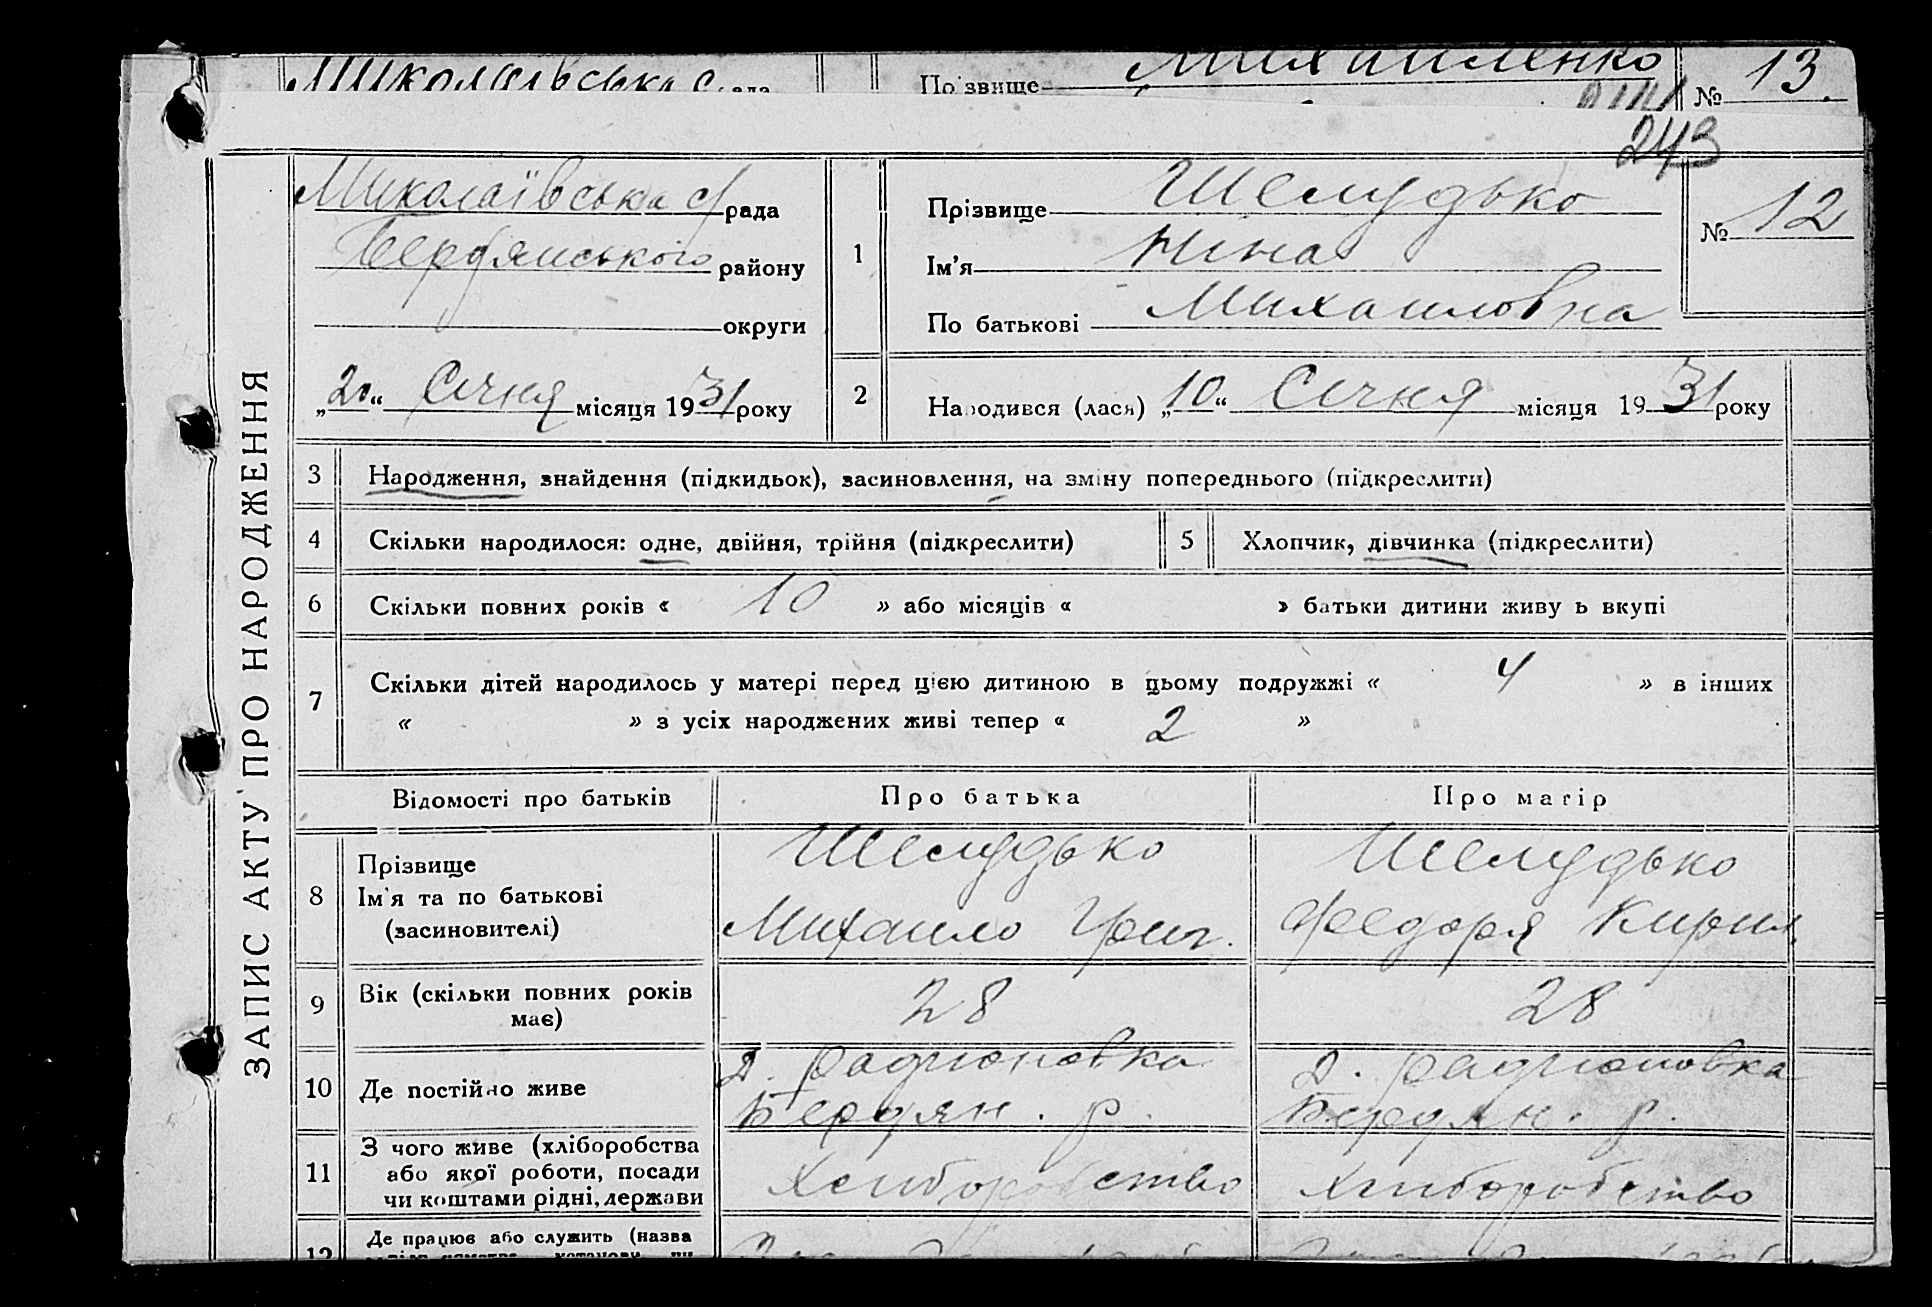 Миколаївська с/рада
По звище Михайленко № 13
243
ЗАПИС АКТУ ПРО НАРОДЖЕННЯ
Миколаївська с/рада
Бердянського району
округи
„20“ Січня місяця 1931 року
1
Прізвище Шелудько
Ім’я Нина
По батькові Михаиловна
№ 12
2
Народився (лася) „10“ Січня місяця 1931 року
3 Народження, знайдення (підкидьок), засиновлення, на зміну попереднього (підкреслити)
4 Скільки народилося: одне, двійня, трійня (підкреслити) 5 Хлопчик, дівчинка (підкреслити)
6 Скільки повних років « 10 » або місяців « » батьки дитини живу ь вкупі
7 Скільки дітей народилось у матері перед цією дитиною в цьому подружжі « 4 » в інших
« » з усіх народжених живі тепер « 2 »
Відомості про батьків Про батька Про матір
8 Прізвище
Ім’я та по батькові
(засиновителі)
Шелудько
Михаило Григ.
Шелудько
Федоря Кирил.
9 Вік (скільки повних років
має)
28 28
10 Де постійно живе
д. Радионовка
Бердян. р.
д. Радионовка
Бердян. р.
11 З чого живе (хліборобства
або якої роботи, посади
чи коштами рідні, держави
Хлиборобство Хлиборобство
12 Де працює або служить (назва